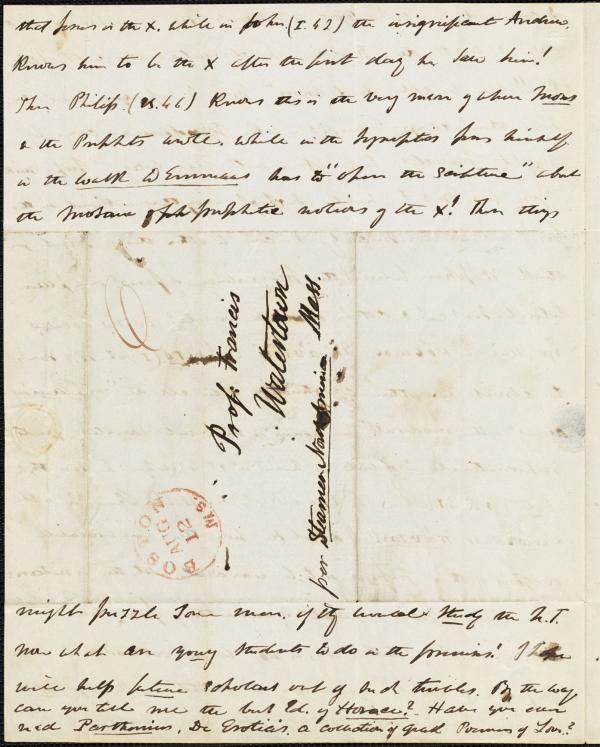 that Jesus is the X. while in John (I. 42) the insignificant Andrew,
knows him to be the X after the first day he saw him!
Then Philip (vs. 46) knows this is the very man of whom Moses
& the Prophets wrote. while in the Synoptics Jesus himself
in the walk to Emmaus has to "open the Scripture" about
the Mosaic & prophetic notions of the X! These things
Prof. Francis
Watertown
Mass.
per Steamer
BOSTON
AUG
12
MS.
might puzzle some men, if they would study the N.T.
now what are young students to do in the premises! I hope
will help future scholars out of such troubles. By the way
can you tell me the best Ed. of Horace? Have you ever
read Parthenius, De Eroticis, a collection of Greek Poems of Love?